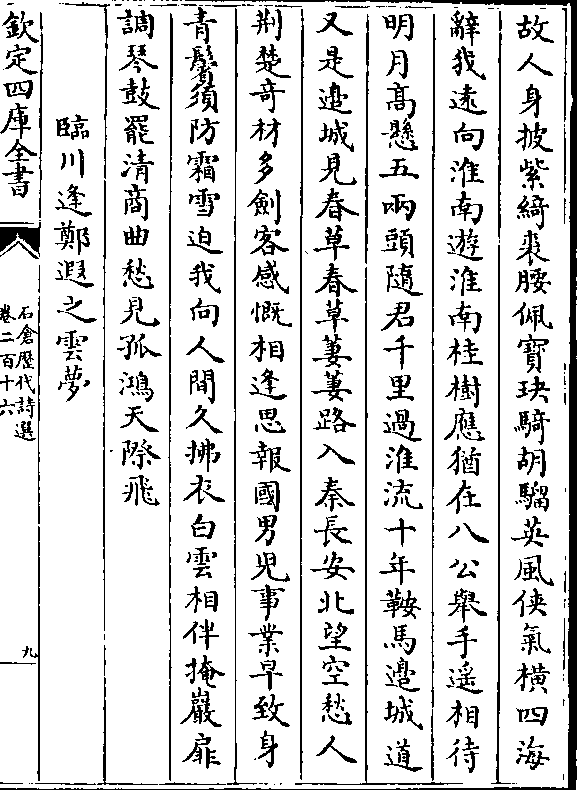 故人身披紫綺裘腰佩寳玦騎胡騮英風俠氣橫四海
辭我逺向淮南遊淮南桂樹應猶在八公舉手遥相待
明月髙懸五兩頭隨君千里過淮流十年鞍馬邉城道
又是邉城見春草春草萋萋路入秦長安北望空愁人
荆楚竒材多劍客感慨相逢思報國男兒事業早致身
青鬢須防霜雪迫我向人間久拂衣白雲相伴掩巖扉
調琴鼓罷清商曲愁見孤鴻天際飛
臨川逢鄭遐之雲夢
欽定四庫全書
石倉歴代詩選
卷二百十六
九